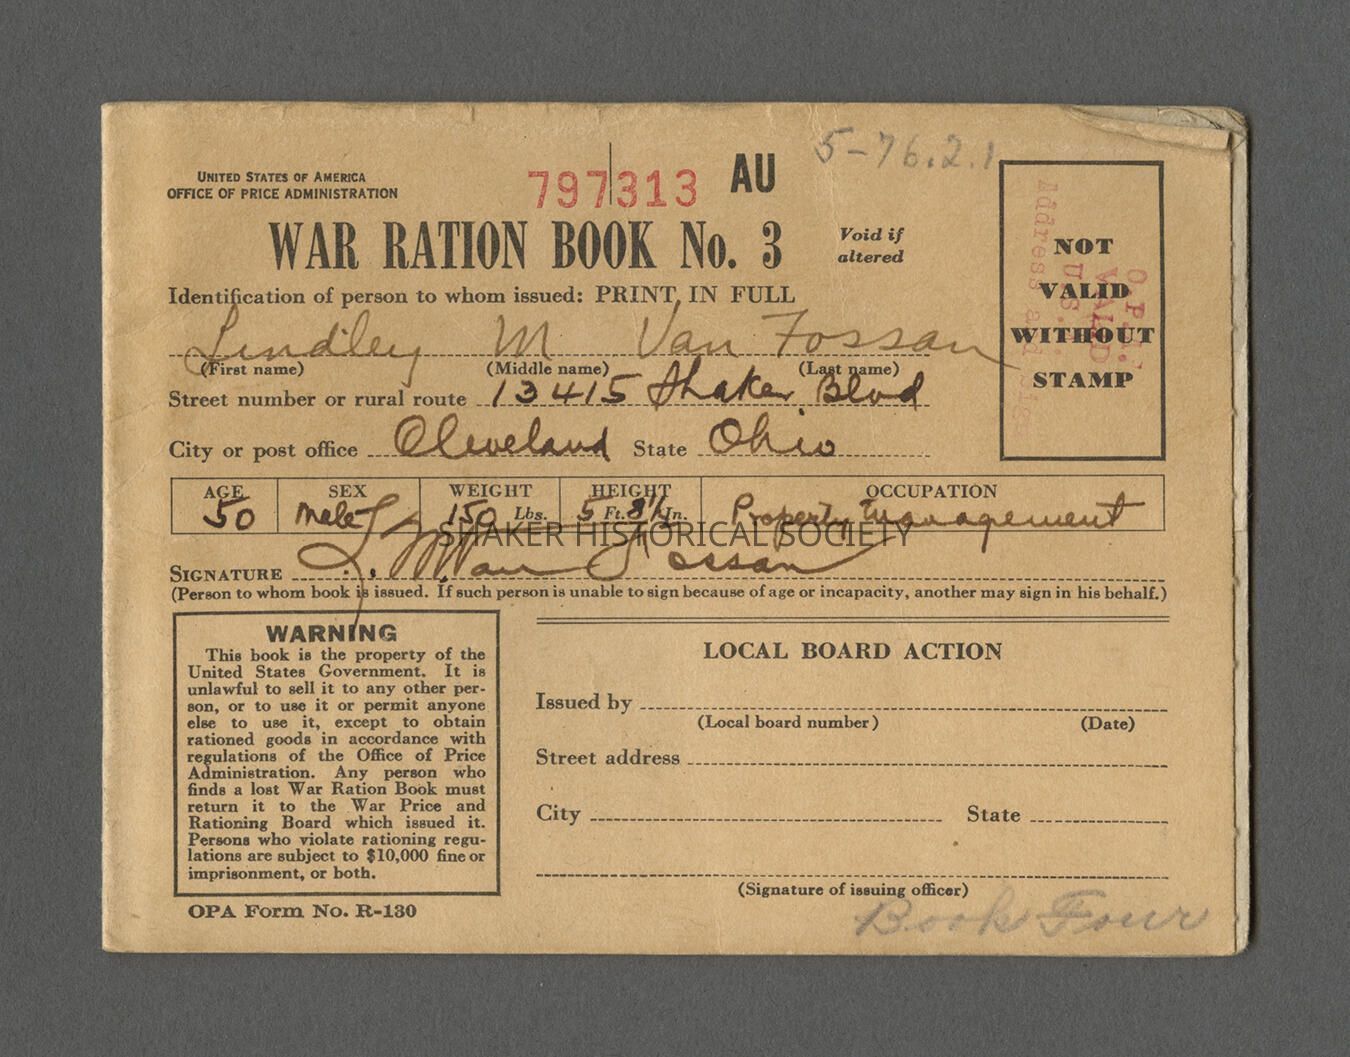 5-76.2.1
UNITED STATES OF AMERICA
OFFICE OF PRICE ADMINISTRATION
797313 AU
WAR RATION BOOK No. 3
Void if
altered
NOT
VALID
WITHOUT
STAMP
Identification of person to whom issued: PRINT IN FULL
Lindley M Van Fossan
(First name) (Middle name) (Last name)
Street number or rural route 13415 Shaker Blvd
City or post office Cleveland State Ohio
AGE SEX WEIGHT HEIGHT OCCUPATION
50 male 150 Lbs. 5 Ft. 8½ In. Property management
SHAKER HISTORICAL SOCIETY
SIGNATURE L. M. Van Fossan
(Person to whom book is issued. If such person is unable to sign because of age or incapacity, another may sign in his behalf.)
WARNING
This book is the property of the
United States Government. It is
unlawful to sell it to any other per-
son, or to use it or permit anyone
else to use it, except to obtain
rationed goods in accordance with
regulations of the Office of Price
Administration. Any person who
finds a lost War Ration Book must
return it to the War Price and
Rationing Board which issued it.
Persons who violate rationing regu-
lations are subject to $10,000 fine or
imprisonment, or both.
OPA Form No. R-130
LOCAL BOARD ACTION
Issued by
(Local board number) (Date)
Street address
City State
(Signature of issuing officer)
Book Four